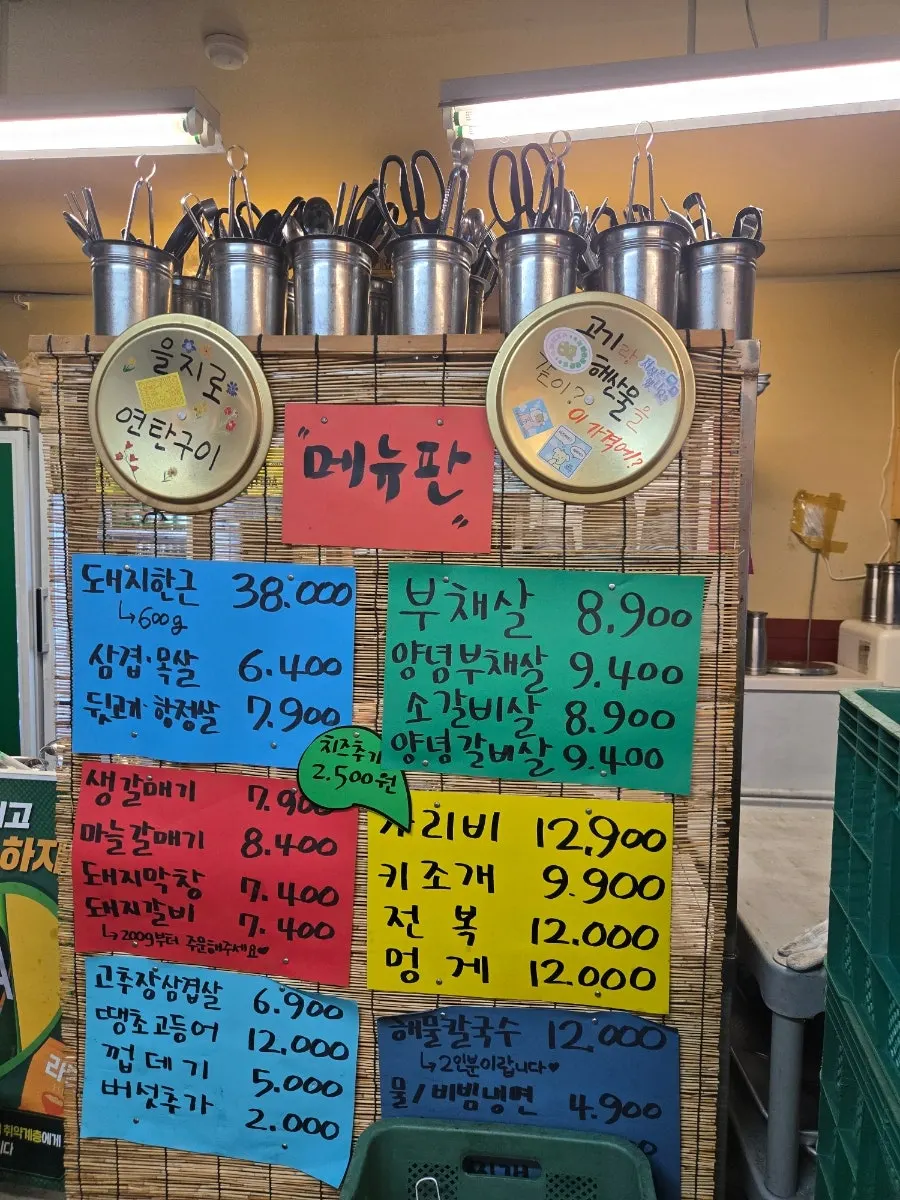 을지로
연탄구이
고기와
해산물을
같이?
이 가격에?
"메뉴판"
돼지한근 38.000
↳600g
삼겹·목살 6.400
뒷고기·항정살 7.900
부채살 8.900
양념부채살 9.400
소갈비살 8.900
양념갈비살 9.400
치즈추가
2.500원
생갈매기 7.900
마늘갈매기 8.400
돼지막창 7.400
돼지갈비 7.400
↳200g부터 주문해주세요♥
리비 12.900
키조개 9.900
전복 12.000
멍게 12.000
고추장삼겹살 6.900
땡초고등어 12.000
껍데기 5.000
버섯추가 2.000
해물칼국수 12.000
↳2인분이랍니다♥
물/비빔냉면 4.900
하지
취약계층에게